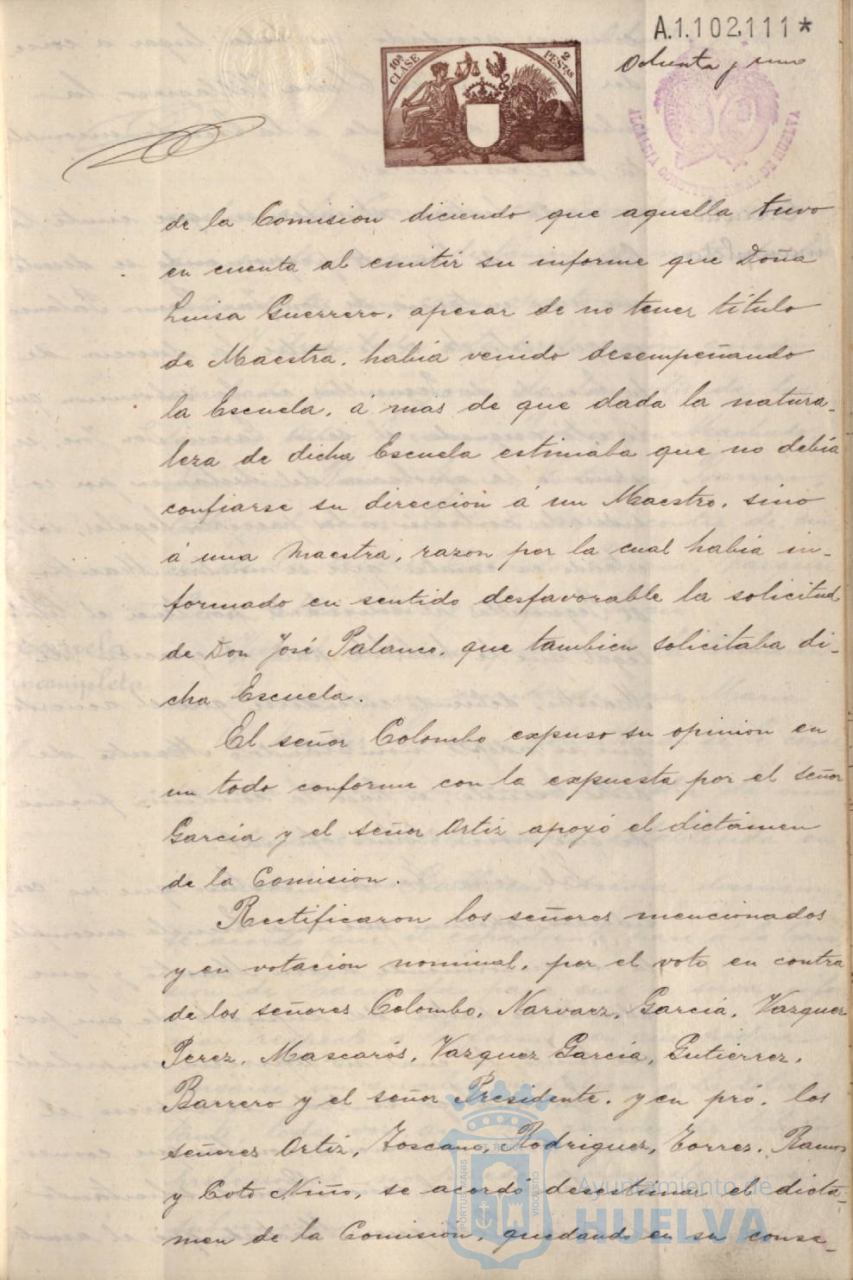 A.1.102,111*
Ochenta y uno
10ª CLASE
2 PESETAS
ALCALDIA CONSTITUCIONAL DE HUELVA
de la Comision diciendo que aquella tuvo
en cuenta al emitir su informe que Doña
Luisa Guerrero, apesar de no tener título
de Maestra, habia venido desempeñando
la Escuela, á mas de que dada la natura-
leza de dicha Escuela estimaba que no debia
confiarse su direccion á un Maestro, sino
á una Maestra, razon por la cual habia in-
formado en sentido desfavorable la solicitud
de Don José Palanco, que tambien solicitaba di-
cha Escuela.
El señor Colombo expuso su opinion en
un todo conforme con la expuesta por el señor
García y el señor Ortiz apoyó el dictámen
de la Comision.
Rectificaron los señores mencionados
y en votacion nominal, por el voto en contra
de los señores Colombo, Narvaez, García, Vazquez
Perez, Mascarós, Vazquez García, Gutierrez,
Barrero y el señor Presidente, y en pró, los
señores Ortiz, Toscano, Rodriguez, Torres, Ramos
y Coto Niño, se acordó desestimar el dictá-
men de la Comision, quedando en su conse-
Ayuntamiento de
HUELVA